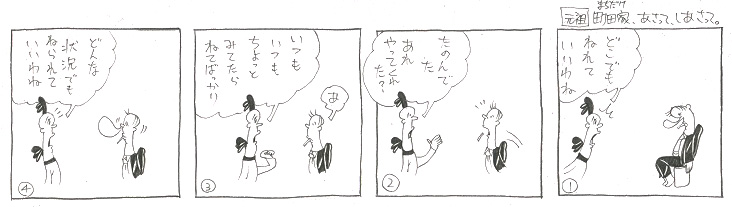 まちだけ
元祖 町田家、あさって、しあさって。
どこでも
ねれて
いいわね
①
たのんで
た
あれ
やってくれ
た?
②
いつも
いつも
ちょっと
みてたら
ねてばっかり
③
どんな
状況でも
ねられて
いいわね
④